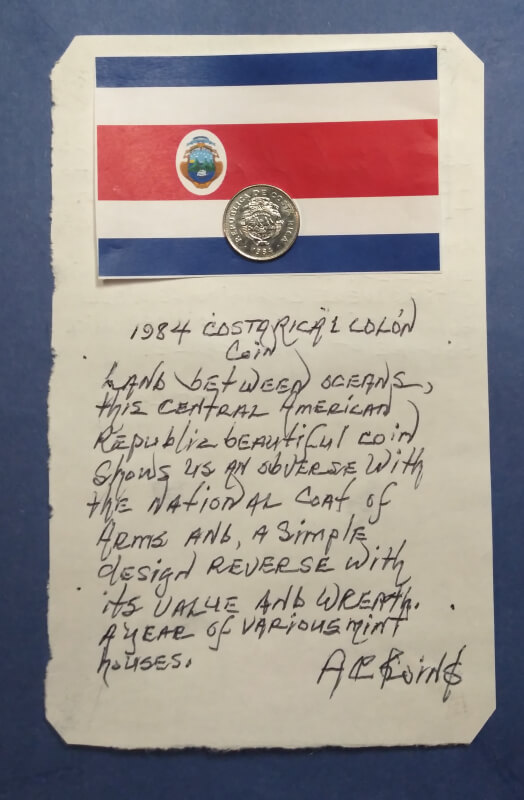 REPUBLICA DE COSTA RICA
1984
1984 COSTARICA 1 COLÓN
COIN
LAND between OCEANS,
this CENTRAL AMERICAN
Republic beautiful coin
Shows us AN obverse with
the NATIONAL COAT of
Arms AND, A Simple
design REVERSE with
its VALUE AND WREATH.
A YEAR OF VARIOUS MINT
houses.